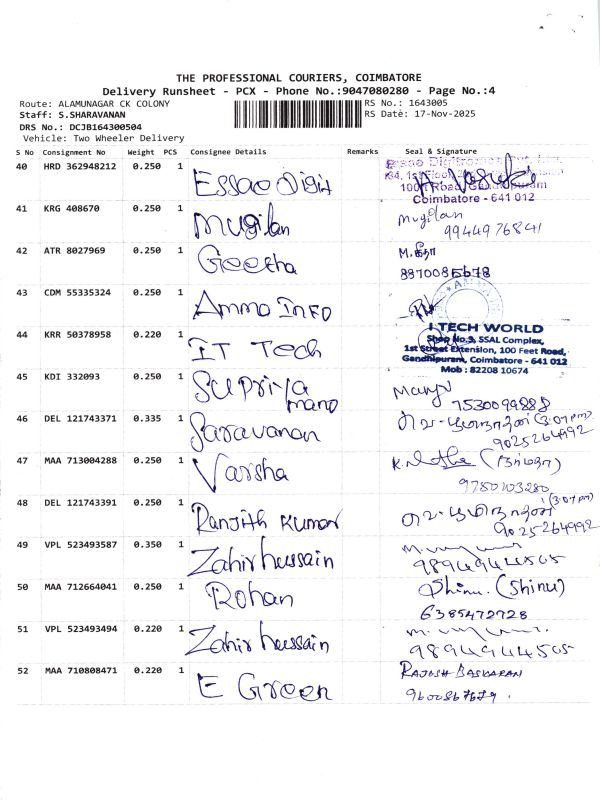 THE PROFESSIONAL COURIERS, COIMBATORE
Delivery Runsheet - PCX - Phone No.:9047080280 - Page No.:4
Route: ALAMUNAGAR CK COLONY
RS No.: 1643005
Staff: S.SHARAVANAN
RS Date: 17-Nov-2025
DRS No.: DCJB164300504
Vehicle: Two Wheeler Delivery
S No Consignment No Weight PCS Consignee Details Remarks Seal & Signature
40 HRD 362948212 0.250 1 Essao Digit
Essao Digitronics Pvt. Ltd.
100 ft Road, Gandhipuram
Coimbatore - 641 012
41 KRG 408670 0.250 1 Mugilan Mugilan
9944976841
42 ATR 8027969 0.250 1 Geetha M.கீதா
8870085678
43 CDM 55335324 0.250 1 Ammo INFO
44 KRR 50378958 0.220 1 IT Tech
I TECH WORLD
Shop No.9, SSAL Complex,
1st Street Extension, 100 Feet Road,
Gandhipuram, Coimbatore - 641 012
Mob : 82208 10674
45 KDI 332093 0.250 1 Supriya
mano
7530099888
46 DEL 121743371 0.335 1 Saravanan (3:07 pm)
9025264992
47 MAA 713004288 0.250 1 Varsha (நர்மதா)
9750203280
48 DEL 121743391 0.250 1 Ranjith Kumar (3:07 pm)
9025264992
49 VPL 523493587 0.350 1 Zahir hussain
9894944505
50 MAA 712664041 0.250 1 Rohan Shinu. (Shinu)
6385472728
51 VPL 523493494 0.220 1 Zahir hussain
9894944505
52 MAA 710808471 0.220 1 E Green RAJESH BASKARAN
9600867679.